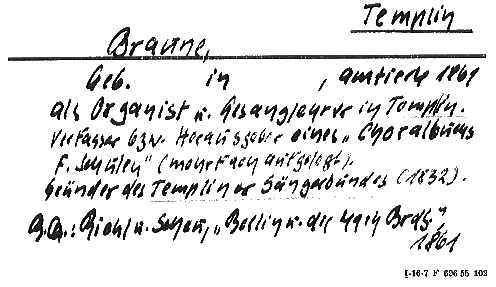 Templin
Braune,
Geb. in , amtierte 1861
als Organist u. Gesanglehrer in Templin.
Verfasser bzw. Herausgeber eines „Choralbuchs
f. Schulen" (mehrfach aufgelegt).
Gründer des Templiner Sängerbundes (1832).
B.Q.: Riehl u. Scheu, „Berlin u. die Mark Brdg."
1861
I-16-7 F 696 55 102